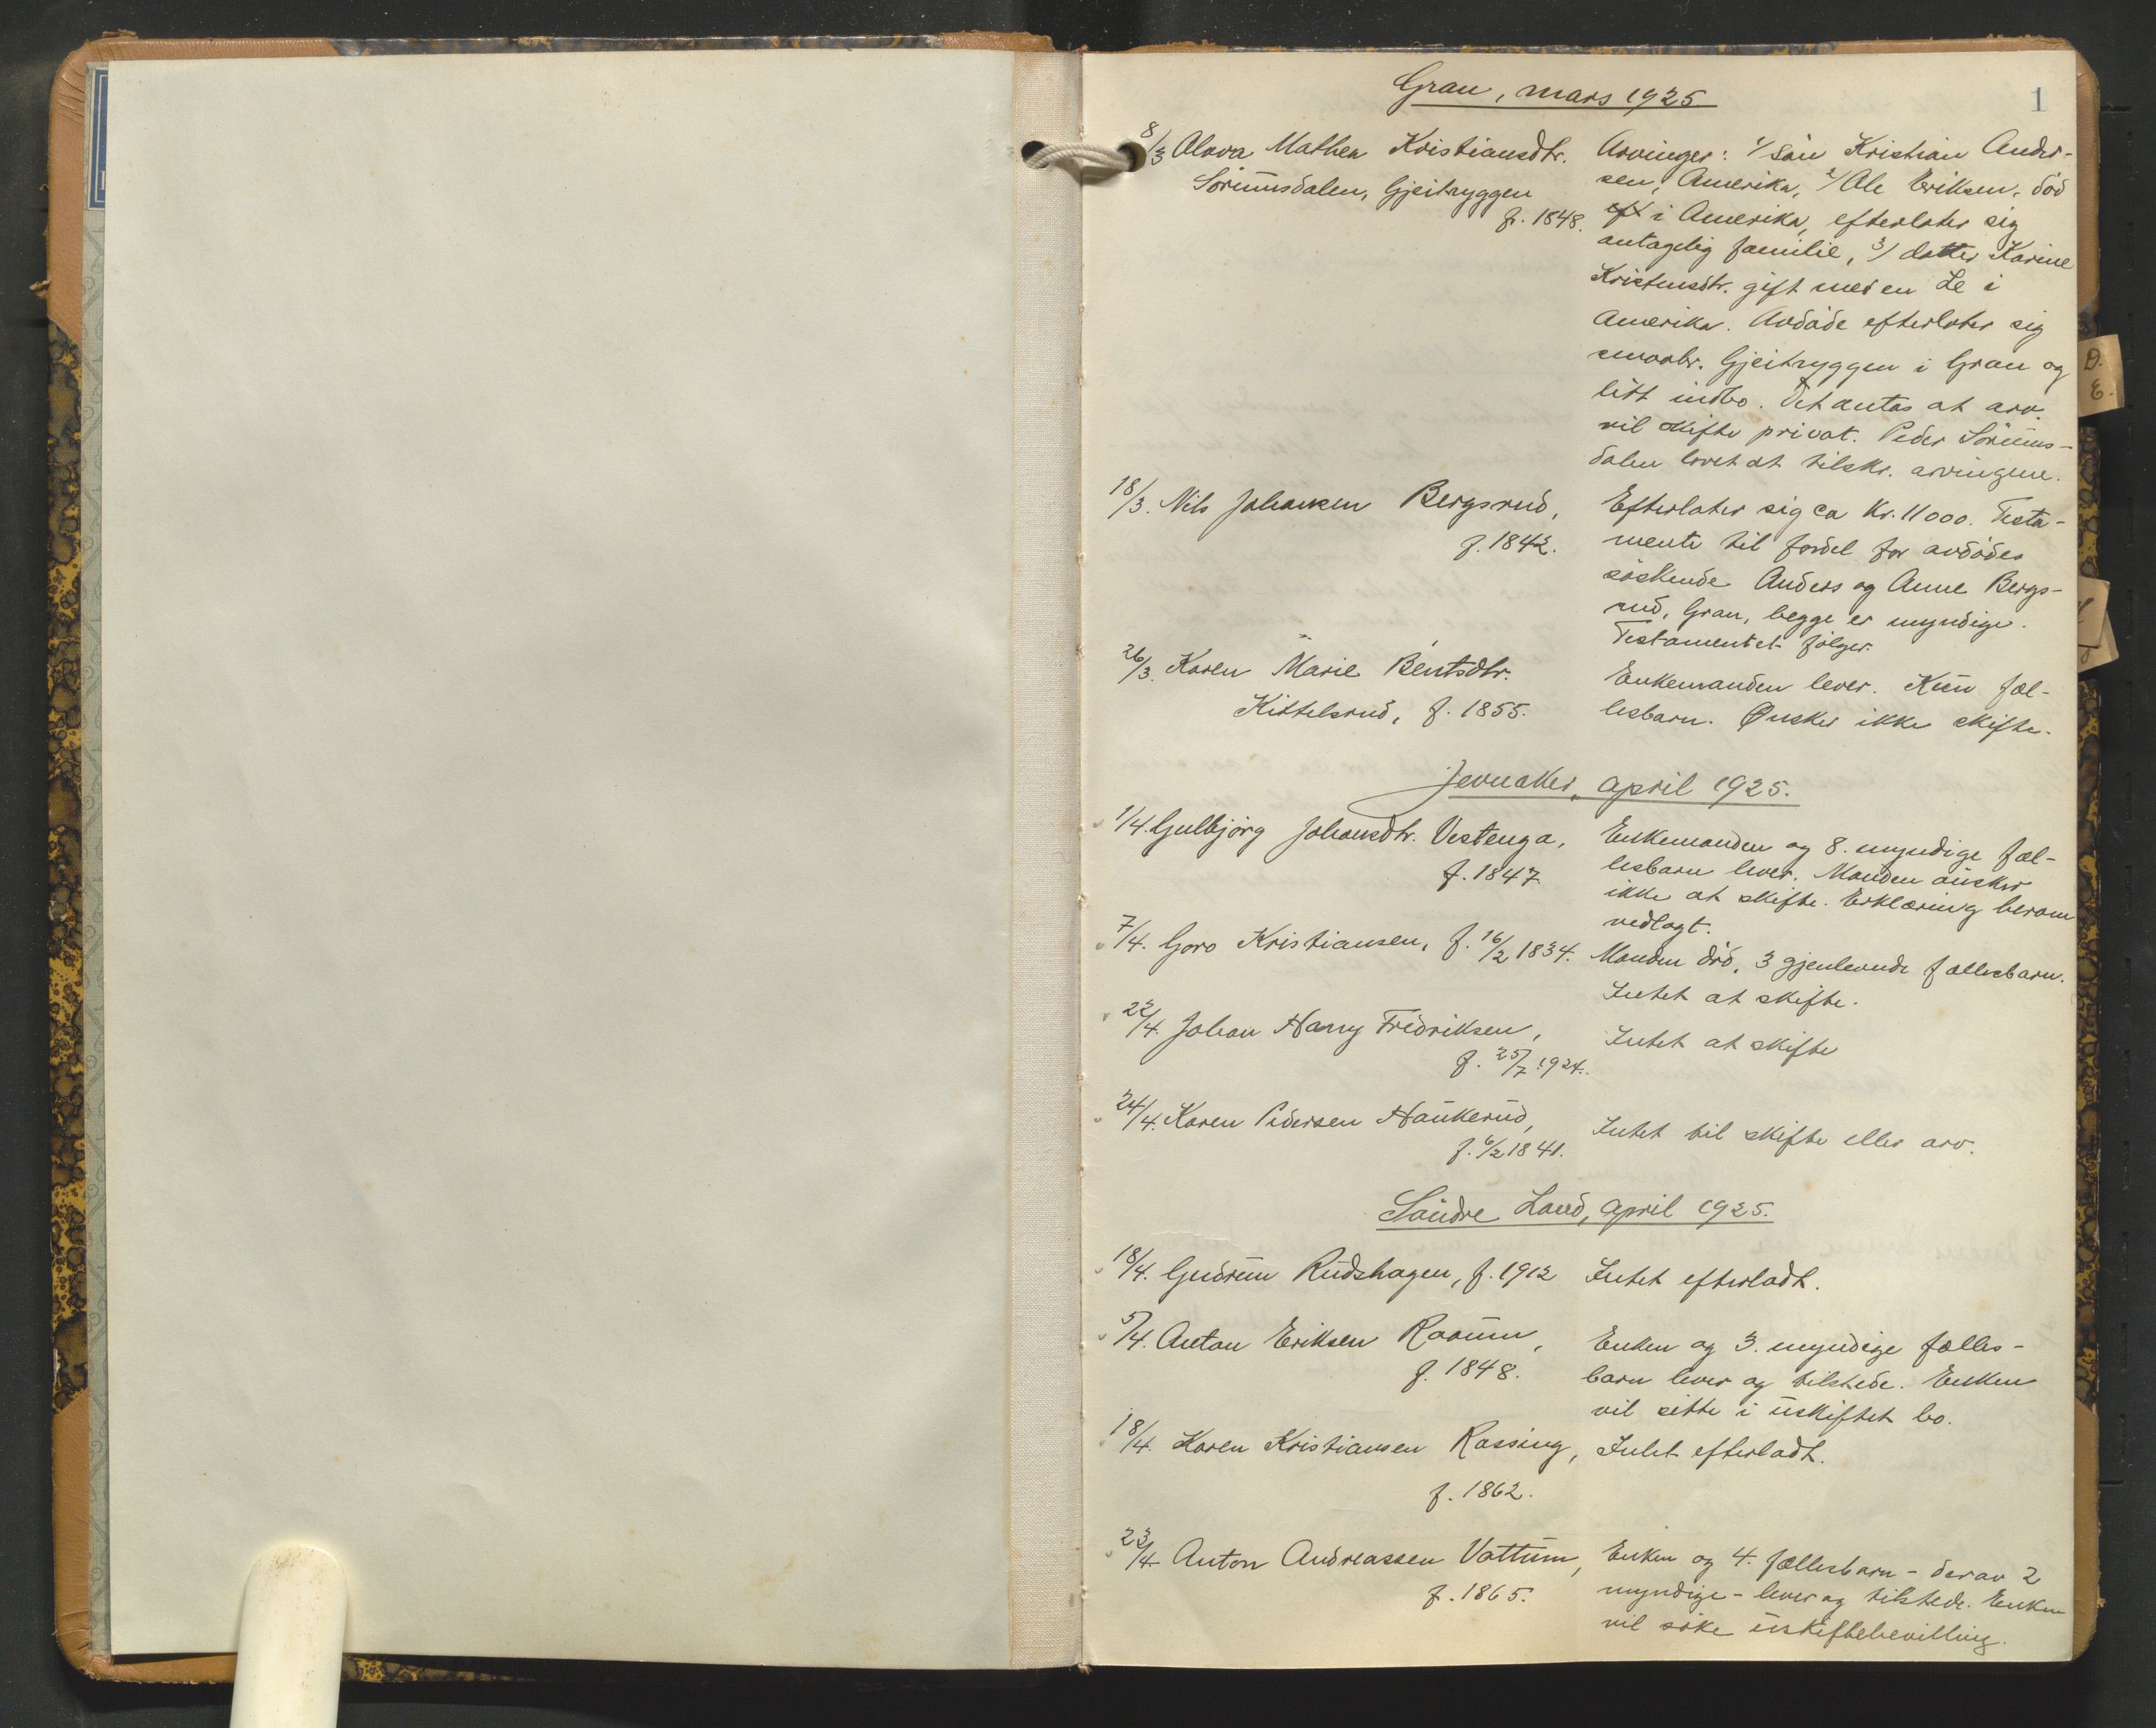 1
Gran, mars 1925
8/3 Olava Mathea Kristiansdtr.
Sörumsdalen, Gjeitryggen
f. 1848.
Arvinger: 1/ sön Kristian Ander-
sen, Amerika, 2/ Ole Eriksen, död
i Amerika, efterlater sig
antagelig familie, 3/ datter Karine
Kristensdtr. gift med en Le i
Amerika. Avdöde efterlater sig
smaabr. Gjeitryggen i Gran og
litt indbo. Det antas at arv.
vil skifte privat. Peder Sörums-
dalen lovet at tilskr. arvingene.
18/3. Nils Johansen Bergsrud,
f. 1842.
Efterlater sig ca Kr. 11000. Testa-
mente til fordel for avdödes
söskende Anders og Anne Bergs-
rud, Gran, begge er myndige.
Testamentet fölger.
26/3. Karen Marie Bentsdtr.
Kittelsrud, f. 1855.
Enkemanden lever. Kun fæl-
lesbarn. Ønsker ikke skifte.
Jevnaker, april 1925.
1/4. Gulbjörg Johansdtr. Vestenga,
f. 1847.
Enkemanden og 8. myndige fæl-
lesbarn lever. Manden önsker
ikke at skifte. Erklæring herom
vedlagt.
7/4. Goro Kristiansen, f. 16/2 1834.
Manden död, 3 gjenlevende fællesbarn.
Intet at skifte.
22/4. Johan Harry Fredriksen,
f. 25/7 1924.
Intet at skifte
24/4. Karen Pedersen Haukerud,
f. 6/2 1841.
Intet til skifte eller arv.
Söndre Land, april 1925.
18/4. Gudrun Rudshagen, f. 1912
Intet efterladt.
5/4. Anton Eriksen Raaum,
f. 1848.
Enken og 3. myndige fælles-
barn lever og tilstede. Enken
vil sitte i uskiftet bo.
18/4. Karen Kristiansen Rassing,
f. 1862.
Intet efterladt.
23/4 Anton Andreassen Vattum,
f. 1865.
Enken og 4. fællesbarn - derav 2
myndige - lever og tilstede. Enken
vil söke uskiftebevilling.
D.
E.